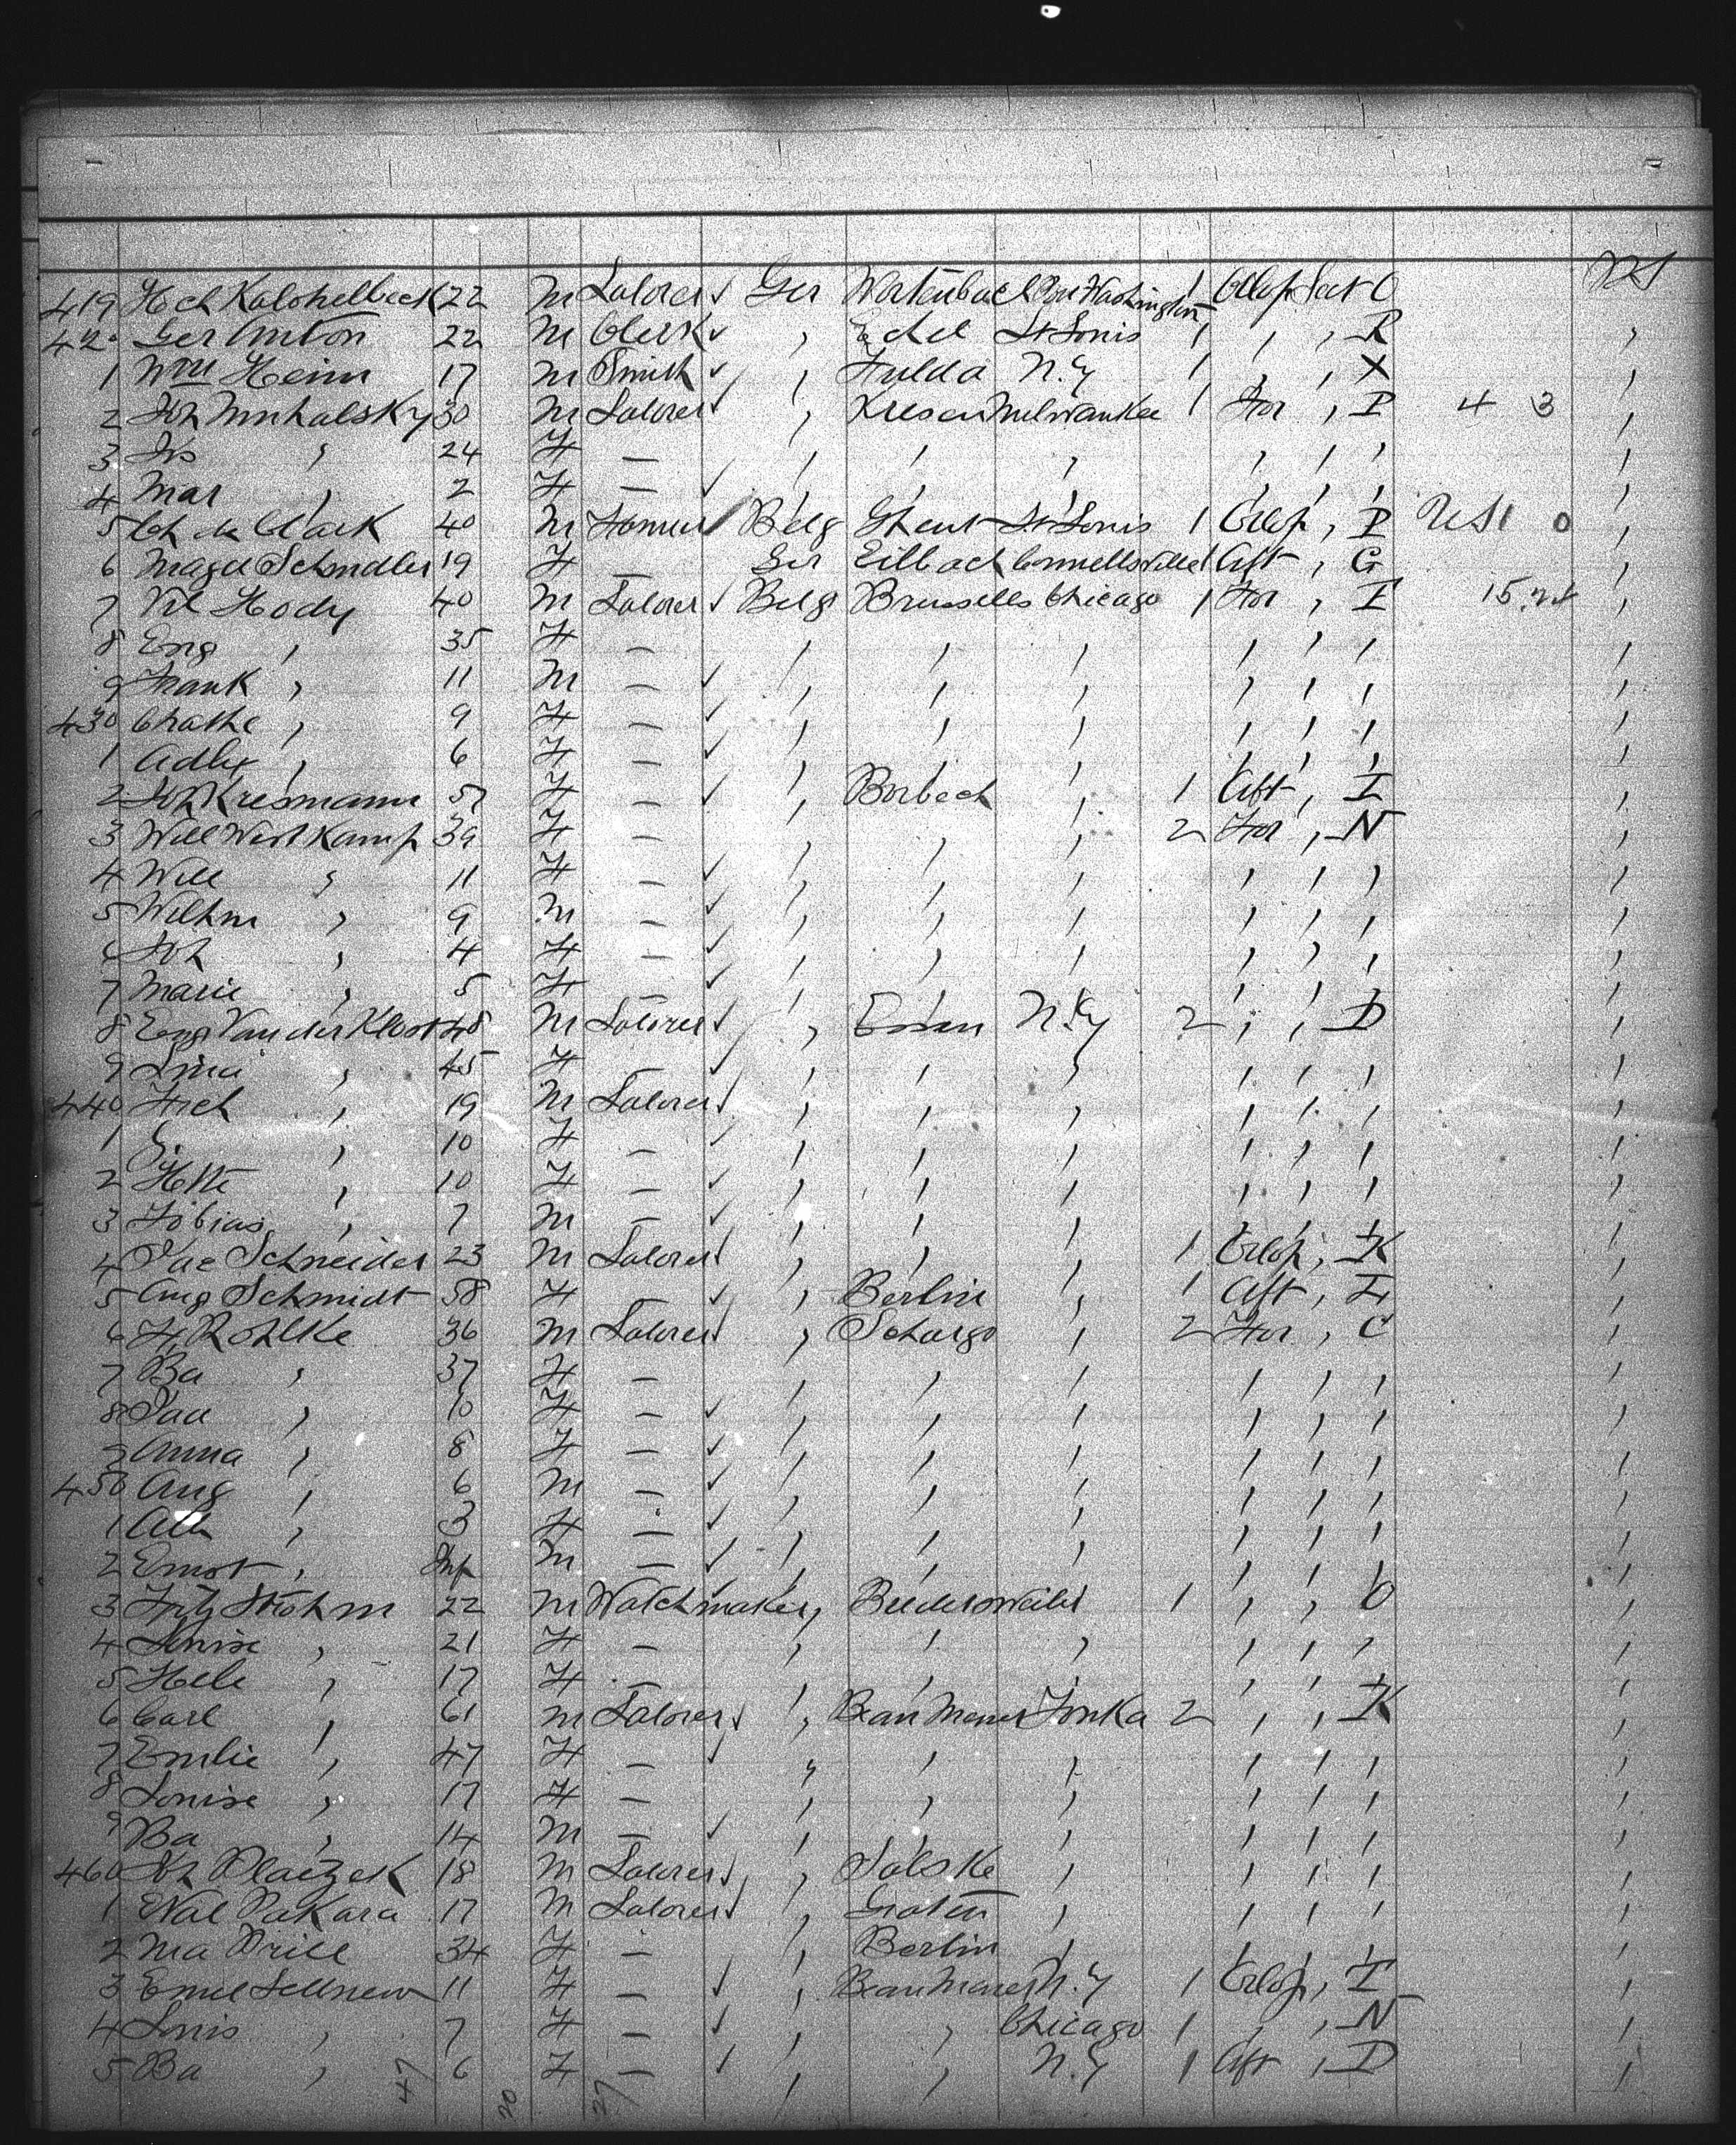 NS
419 Hch Kalohelbeck 22 M Laborer ✓ Ger Wortenbach Port Washington 1 Orlop Sect O
420 Ger Anton 22 M Clerk ✓ , Echel St Louis 1 , , R ,
1 Wm Heim 17 M Smith ✓ , Fulda N.Y 1 , , X ,
2 Joh Mmhalsky 30 M Laborer ✓ , Kresen Milwaukee 1 For , P 4 3 ,
3 Js , 24 F — , , , , , , ,
4 Mar , 2 F — ✓ , , , , , , ,
5 Ch de Clack 40 M Farmer ✓ Belg Ghent St Louis 1 Orlop , P USt 0 ,
6 Magd Schmdler 19 F — Ger Eilbach Connellsville 1 Aft , G ,
7 Vil Hody 40 M Laborer ✓ Belg Brussells Chicago 1 For , I 15 ,
8 Eng , 35 F — , , , , , , ,
9 Frank , 11 M — ✓ , , , , , , ,
430 Chathe , 9 F — ✓ , , , , , , ,
1 Adlix , 6 F — ✓ , , , , , , ,
2 Joh Kresmann 57 F — ✓ , Borbeck , 1 Aft , I ,
3 Will Westkamp 39 F — , , , 2 For , N ,
4 Will , 11 F — ✓ , , , , , , ,
5 Wilhm , 9 M — ✓ , , , , , , ,
6 Joh , 4 F — ✓ , , , , , , ,
7 Marie , 5 F — ✓ , , , , , , ,
8 Eng Van der Klost 48 M Laborer ✓ , Essen N.Y 2 , , D ,
9 Lina , 45 F — ✓ , , , , , , ,
440 Frch , 19 M Laborer ✓ , , , , , , ,
1 , 10 F — ✓ , , , , , , ,
2 Hette , 10 F — ✓ , , , , , , ,
3 Tobias , 7 M — ✓ , , , , , , ,
4 Jac Schneider 23 M Laborer ✓ , , 1 Orlop , K ,
5 Aug Schmidt 58 F — ✓ , Berlin , 1 Aft , I ,
6 F. Rohlke 36 M Laborer ✓ , Schargo , 2 For , C ,
7 Ba , 37 F — , , , , , , ,
8 Pau , 10 F — ✓ , , , , , , ,
9 Anna , 8 F — ✓ , , , , , , ,
450 Aug , 6 M — ✓ , , , , , , ,
1 , 3 F — ✓ , , , , , , ,
2 Ernst , Inf M — ✓ , , , , , , ,
3 Fritz Strohm 22 M Watchmaker , Beedersweiler 1 , , O ,
4 Louise , 21 F — , , , , , , ,
5 Hele , 17 F — , , , , , , ,
6 Carl , 61 M Laborer ✓ , Beau Maner Tonka 2 , , K ,
7 Emilie , 47 F — ✓ , , , , , , ,
8 Louise , 17 F — , , , , , , ,
9 Ba , 14 M — ✓ , , , , , , ,
460 Joh Placzek 18 M Laborer ✓ , Salske , , , , ,
1 Wal Pakara 17 M Laborer ✓ , Groten , , , , ,
2 Ma Prill 34 F — , Berlin , , , , ,
3 Emil Sellnew 11 F — ✓ , Beau Maner N.Y 1 Orlop , I ,
4 Louis , 7 F — ✓ , , Chicago 1 , , N ,
5 Ba , 6 F — ✓ , , N.Y 1 Aft , D ,
47 20 27